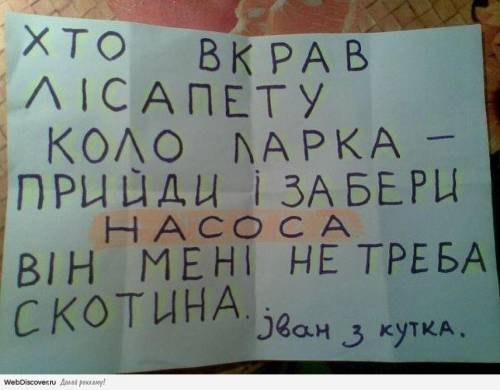 ХТО ВКРАВ
ЛІСАПЕТУ
КОЛО ПАРКА –
ПРИЙДИ І ЗАБЕРИ
НАСОСА
ВІН МЕНІ НЕ ТРЕБА
СКОТИНА.
Іван з кутка.
WebDiscover.ru Долой рекламу!